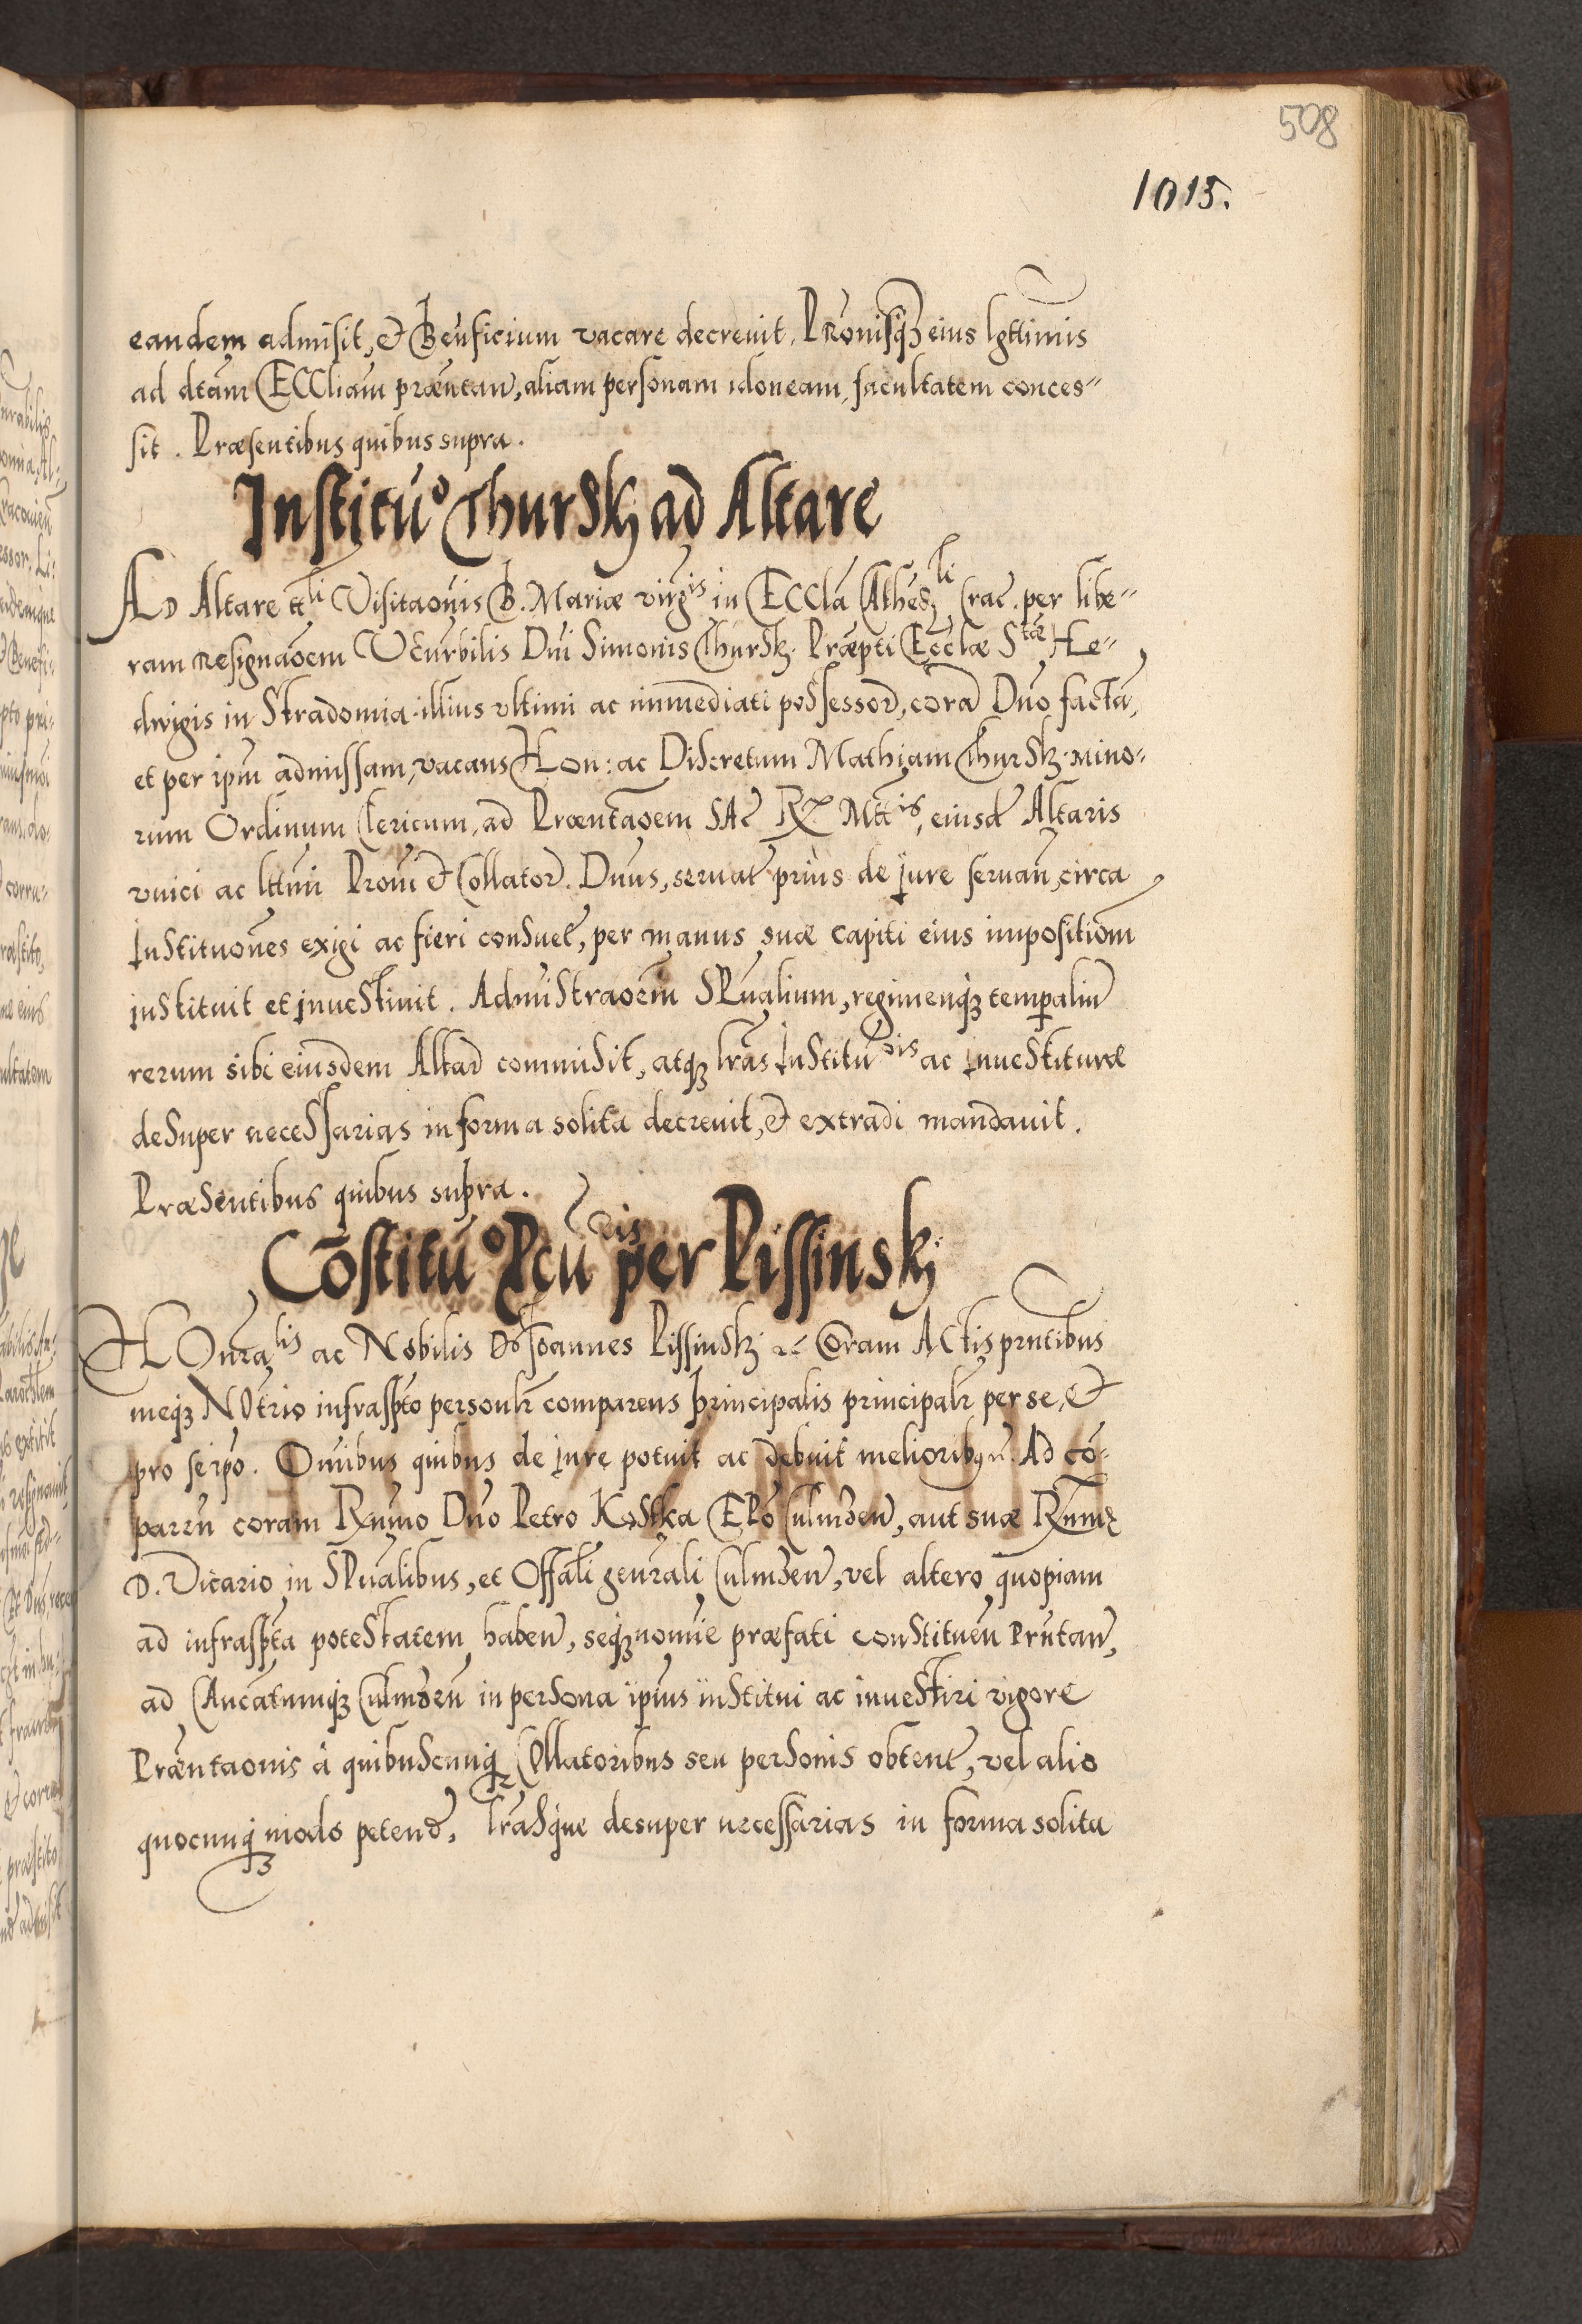 508
1015.
eandem admisit, et Benficium vacare decrevit, Pronisqȝ eius lgttimis
ad dtam ECCliam præntan, aliam personam idoneam, facultatem conces=
sit. Præsentibus quibus supra.
Institũo Thurskj ad Altare
AD Altare ttli Visitaonis B. Mariæ virgis in ECCla Cathedli Crac. per libe=
ram resignaoem Venrbilis Dni Simonis Thursk. Præpti Ecclæ Stæ He=
dvigis in Stradomia illius vltimi ac immediati possessor, cora Dno facta,
et per ipm admissam, vacans Hon: ac Discretum Mathiam Thursk mino=
rum Ordinum Clericum, ad Præntaoem SAc Rx Mttis, eiusd Altaris
vnici ac lttmi Proni et Collator. Dnus, servat prius de jure servan, circa
Institutiones exigi ac fieri consuet, per manus suæ capiti eius impositiom
instituit et investivit. Admistraoem SPualium, regimenqȝ temporaliu
rerum sibi eiusdem Altar commisit, atqȝ lras Institũois ac investituræ
desuper necessarias in forma solita decrevit, et extradi mandavit.
Præsentibus quibus supra.
Cõstitũo Pcũ ois per Pissinskj
HOnralis ac Nobilis Ds Joannes Pissinskj etc Coram ACtis prntibus
meqȝ NOtrio infraspto personlr comparens principalis principalr per se, et
pro se ipo. Omnibus quibus de jure potuit ac debuit melioribȝ. Ad co=
paren coram Rxnmo Dno Petro Kostka EPo Culmsen, aut suæ Rxnmæ
D. Vicario in SPualibus, et Offali genrali Culmsen, vel altero quopiam
ad infraspta potestatem haben, seqȝ nomie præfati constituen Prntan,
ad Cancatumqȝ Culmsen in persona ipius institui ac investiri vigore
Præntaonis à quibuscunqȝ Collatoribus seu personis obtent, vel alio
quocunqȝ modo petend, lrasque desuper necessarias in forma solita